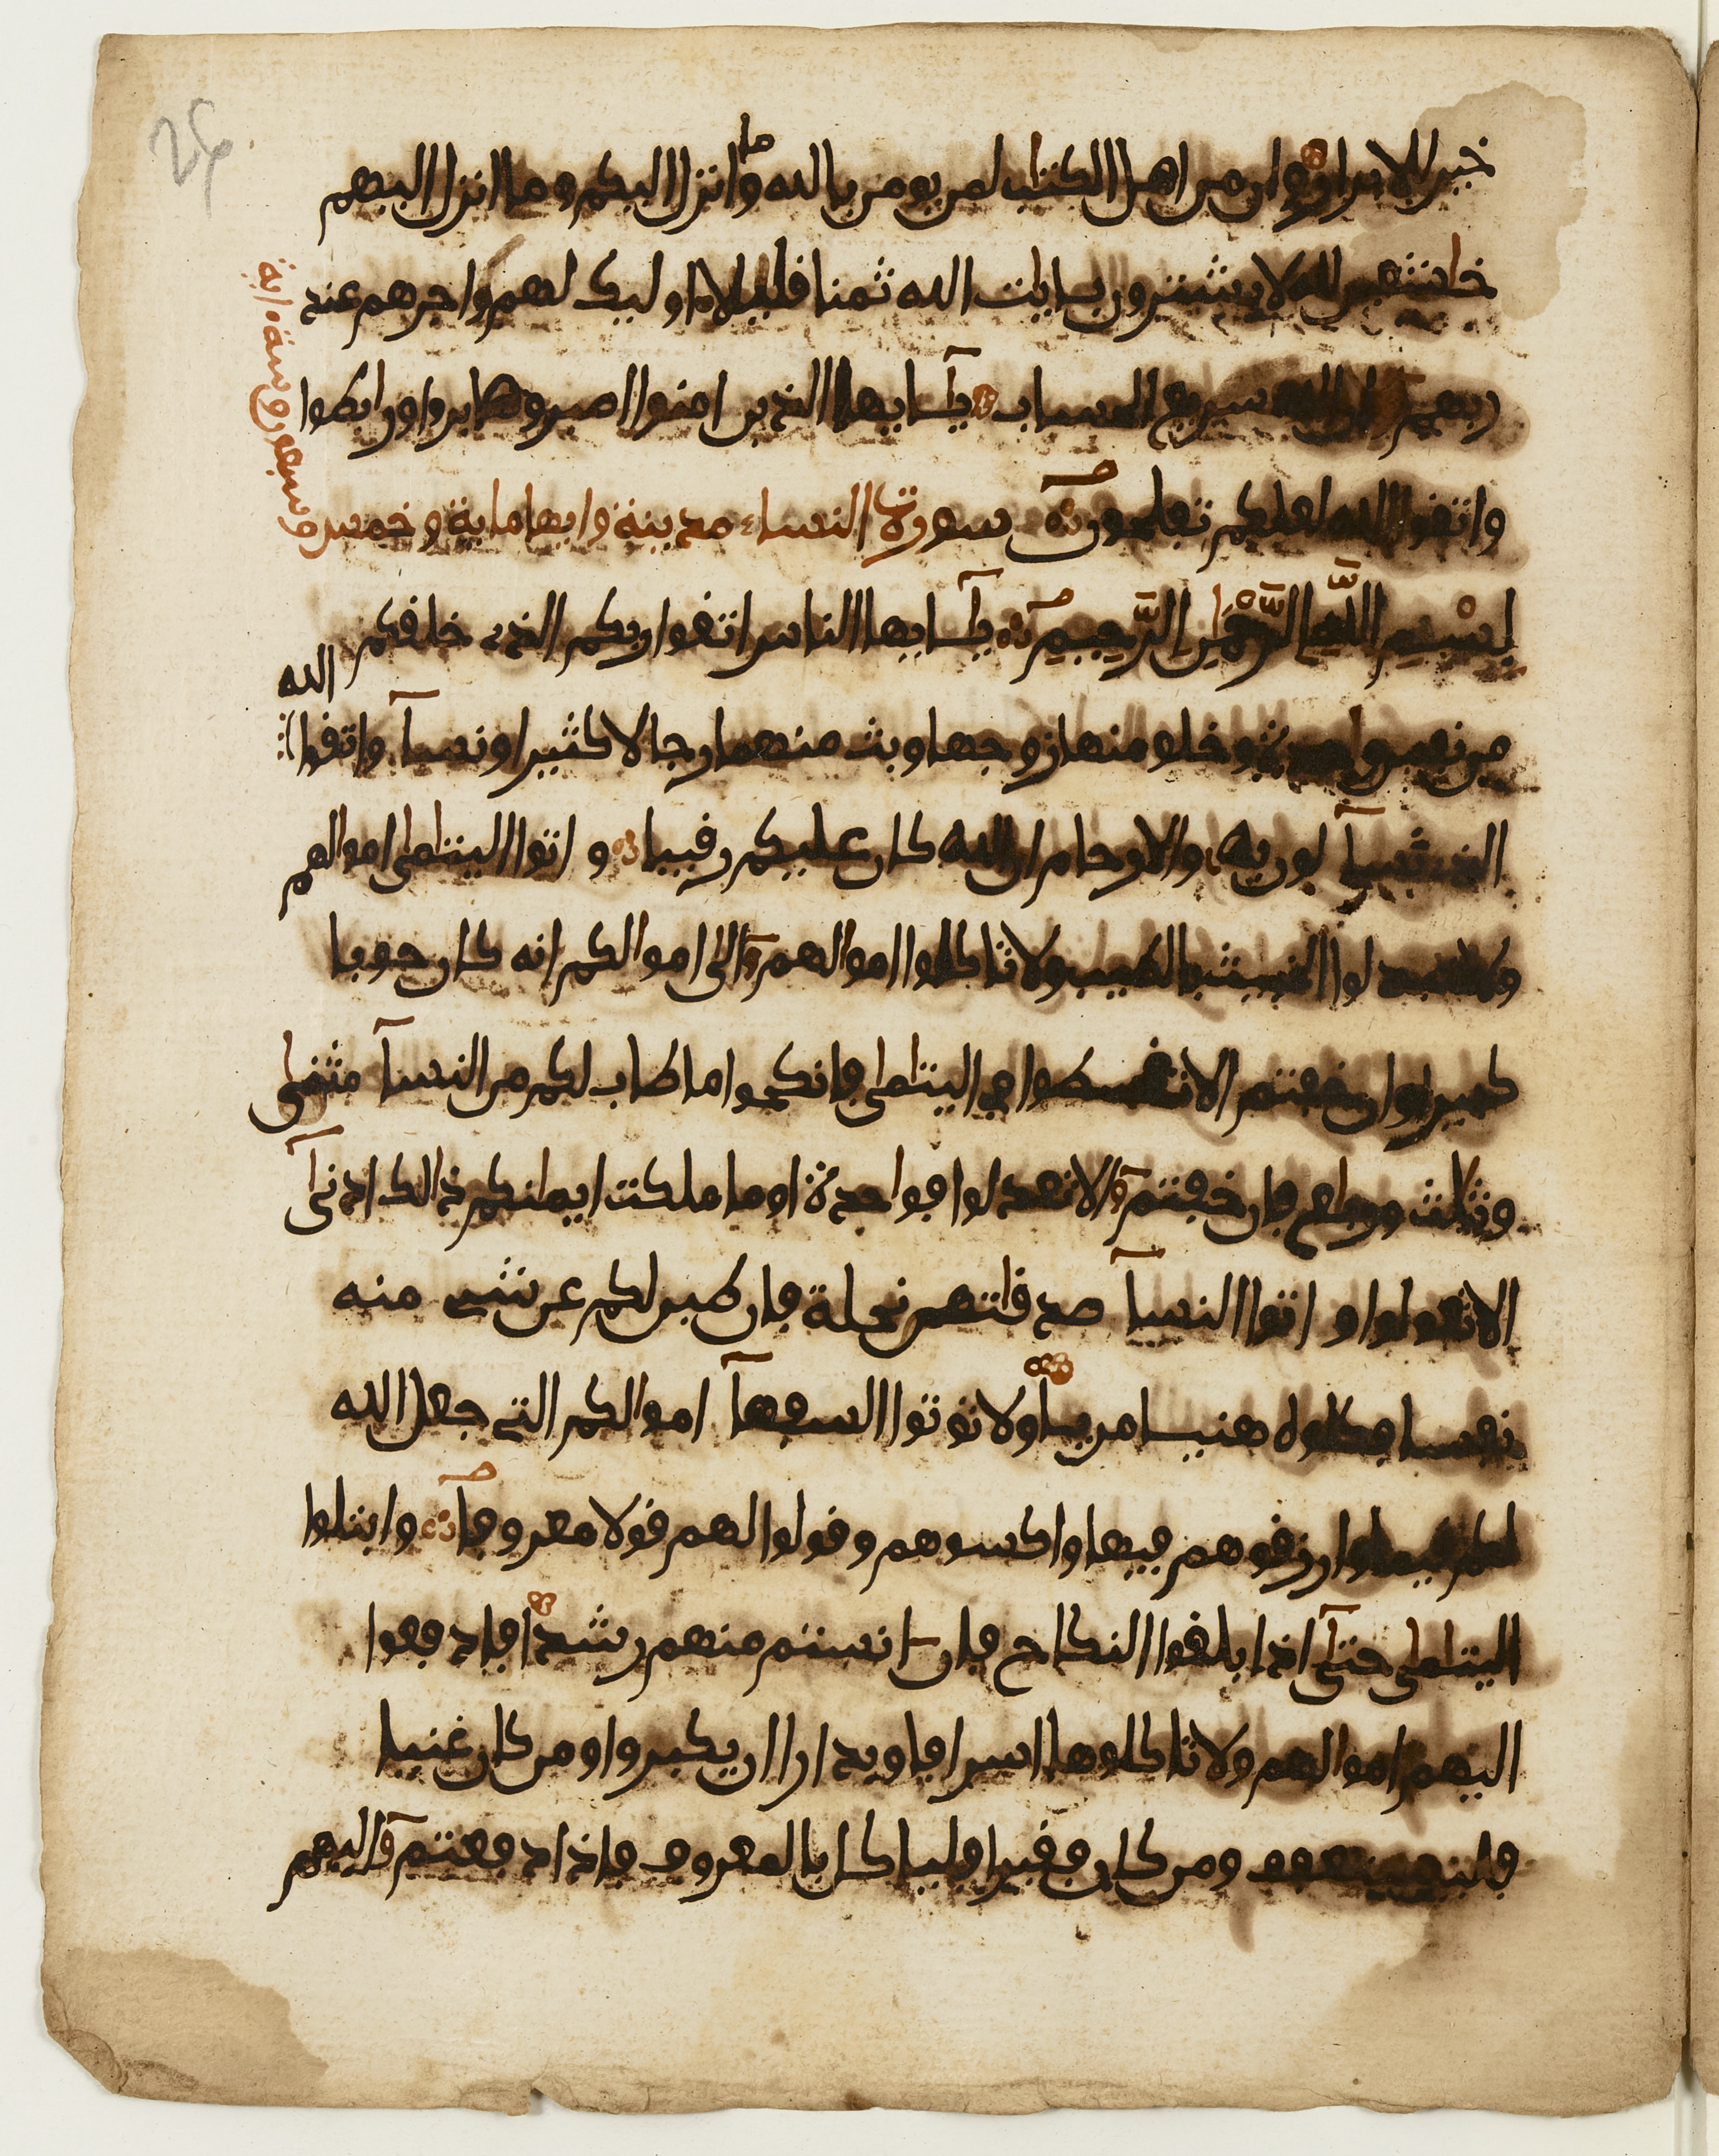 خير للابرار وان من اهل الكتاب لمن يومن بالله وما انزل اليكم وما انزل اليهم
خاشعين لله لا يشترون بايات الله ثمنا قليلا اوليك لهم اجرهم عند
ربهم ان الله سريع الحساب يايها الذين امنوا اصبروا وصابروا ورابطوا
واتقوا الله لعلكم تفلحون سورة النساء مدينة وايها ماية وخمس
وسبعون وستة اية
بسم الله الرحمن الرحيم يايها الناس اتقوا ربكم الذي خلقكم
من نفس واحدة وخلق منها زوجها وبث منهما رجالا كثيرا ونسآ واتقوا الله
الذي تسآلون به والارحام ان الله كان عليكم رقيبا واتوا اليتامى اموالهم
ولا تتبدلوا الخبيث بالطيب ولا تاكلوا اموالهم الى اموالكم انه كان حوبا
كبيرا وان خفتم الا تقسطوا في اليتامى فانكحوا ما طاب لكم من النسآ مثنى
وثلث ورباع فان خفتم الا تعدلوا فواحدة او ما ملكت ايمانكم ذالك ادنى
الا تعولوا واتوا النسآ صدقاتهن نحلة فان طبن لكم عن شي منه
نفسا فكلوه هنيا مريا ولا توتوا السفهآ اموالكم التي جعل الله
لكم قيما وارزقوهم فيها واكسوهم وقولوا لهم قولا معروفا وابتلوا
اليتامى حتى اذا بلغوا النكاح فان انستم منهم رشدا فادفعوا
اليهم اموالهم ولا تاكلوها اسرافا وبدارا ان يكبروا ومن كان غنيا
فليستعفف ومن كان فقيرا فلياكل بالمعروف فاذا دفعتم اليهم